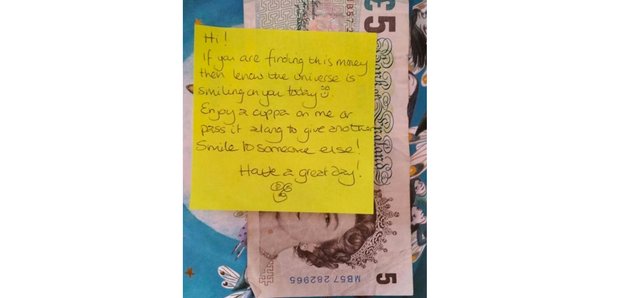 Hi!
If you are finding this money
then know the universe is
smiling on you today
Enjoy a cuppa on me or
pass it along to give another
smile to someone else!
Have a great day!
£5
MB57 282
Bank of England
MB57 282965
5